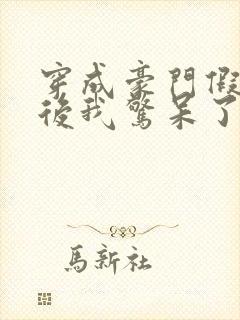 穿成豪門假
後我驚呆了
馬新社